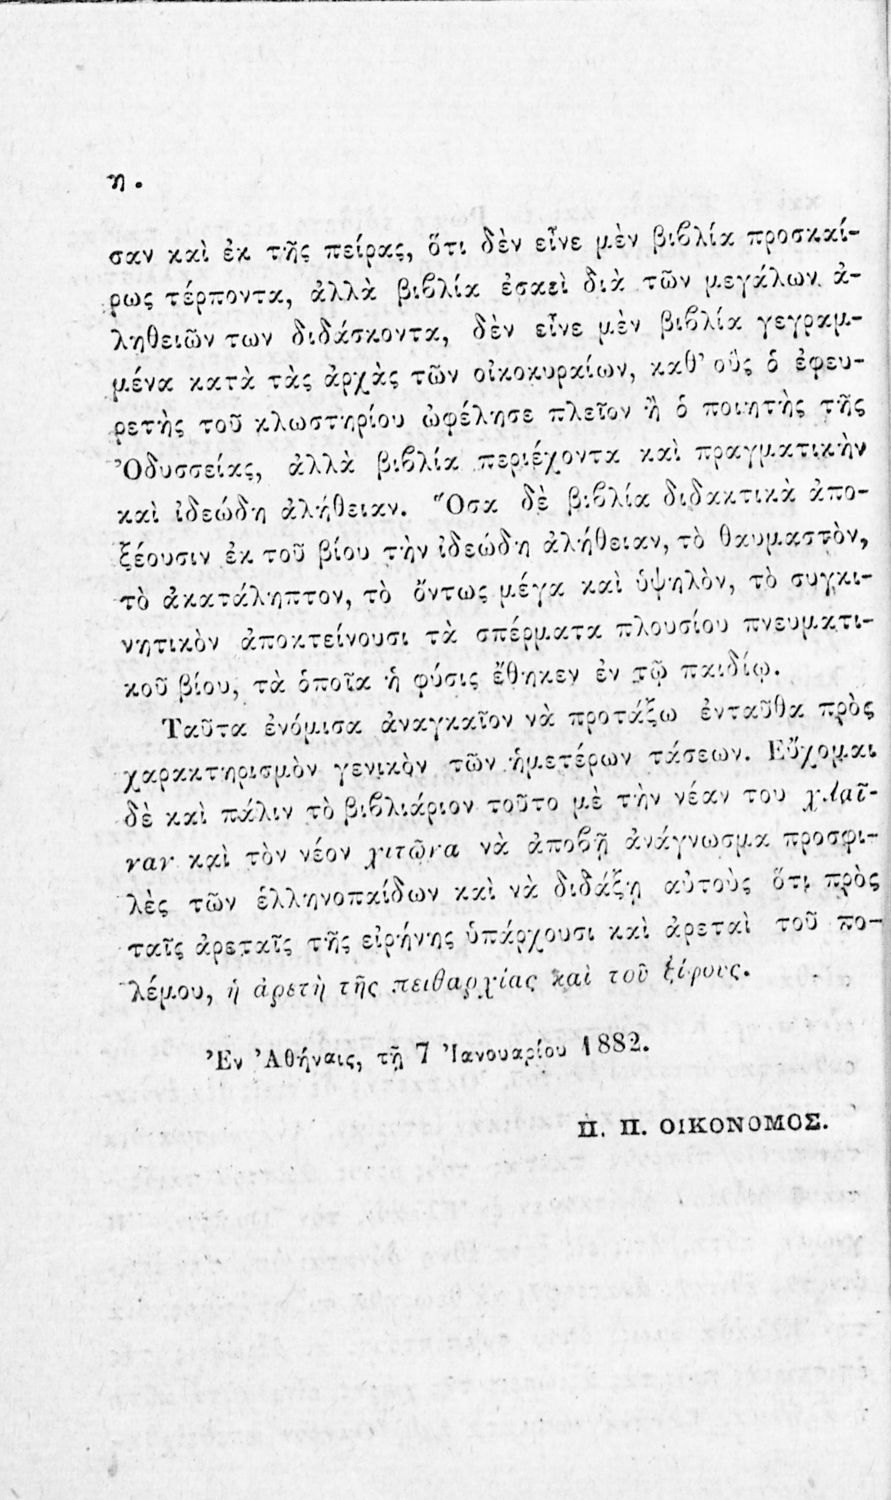 η.
σαν καὶ ἐκ τῆς πείρας, ὅτι δὲν εἶνε μὲν βιβλία προσκαί-
ρως τέρποντα, ἀλλὰ βιβλία ἐσαεὶ διὰ τῶν μεγάλων ἀ-
ληθειῶν των διδάσκοντα, δὲν εἶνε μὲν βιβλία γεγραμ-
μένα κατὰ τὰς ἀρχὰς τῶν οἰκοκυραίων, καθ' οὓς ὁ ἐφευ-
ρετὴς τοῦ κλωστηρίου ὠφέλησε πλεῖον ἢ ὁ ποιητὴς τῆς
Ὀδυσσείας, ἀλλὰ βιβλία περιέχοντα καὶ πραγματικὴν
καὶ ἰδεώδη ἀλήθειαν. Ὅσα δὲ βιβλία διδακτικὰ ἀπο-
ξέουσιν ἐκ τοῦ βίου τὴν ἰδεώδη ἀλήθειαν, τὸ θαυμαστὸν,
τὸ ἀκατάληπτον, τὸ ὄντως μέγα καὶ ὑψηλὸν, τὸ συγκι-
νητικὸν ἀποκτείνουσι τὰ σπέρματα πλουσίου πνευματι-
κοῦ βίου, τὰ ὁποῖα ἡ φύσις ἔθηκεν ἐν τῷ παιδίῳ.
Ταῦτα ἐνόμισα ἀναγκαῖον νὰ προτάξω ἐνταῦθα πρὸς
χαρακτηρισμὸν γενικὸν τῶν ἡμετέρων τάσεων. Εὔχομαι
δὲ καὶ πάλιν τὸ βιβλιάριον τοῦτο μὲ τὴν νέαν του χλαῖ-
ναν καὶ τὸν νέον χιτῶνα νὰ ἀποβῇ ἀνάγνωσμα προσφι-
λὲς τῶν ἑλληνοπαίδων καὶ νὰ διδάξῃ αὐτοὺς ὅτι πρὸς
ταῖς ἀρεταῖς τῆς εἰρήνης ὑπάρχουσι καὶ ἀρεταὶ τοῦ πο-
λέμου, ἡ ἀρετὴ τῆς πειθαρχίας καὶ τοῦ ξίφους.
Ἐν Ἀθήναις, τῇ 7 Ἰανουαρίου 1882.
Π. Π. ΟΙΚΟΝΟΜΟΣ.